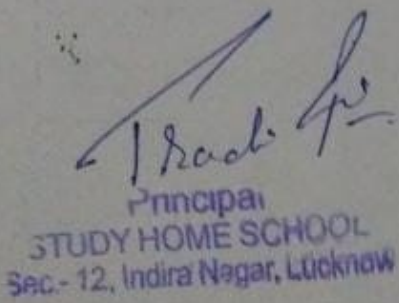 Principal
STUDY HOME SCHOOL
Sec.- 12, Indira Nagar, Lucknow